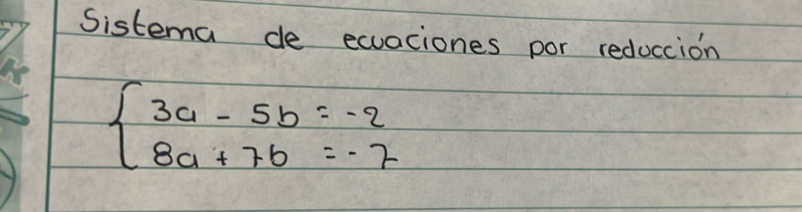 Sistema de ecuaciones por reducción
3a - 5b = -2
8a + 7b = -7